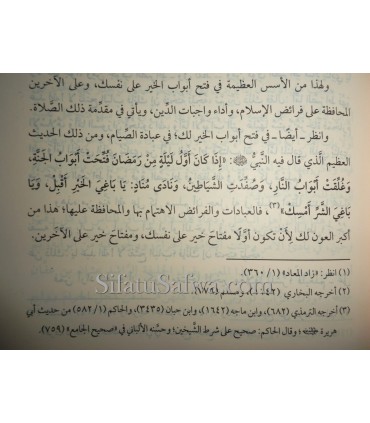 ولهذا من الأسس العظيمة في فتح أبواب الخير على نفسك، وعلى الآخرين
المحافظة على فرائض الإسلام، وأداء واجبات الدِّين، ويأتي في مقدِّمة ذلك الصَّلاة.
وانظر ـ أيضًا ـ في فتح أبواب الخير لك؛ في عبادة الصِّيام، ومن ذلك الحديث
العظيم الَّذي قال فيه النَّبيُّ ﷺ: «إِذَا كَانَ أَوَّلُ لَيْلَةٍ مِنْ رَمَضَانَ فُتِّحَتْ أَبْوَابُ الجَنَّةِ،
وَغُلِّقَتْ أَبْوَابُ النَّارِ، وَصُفِّدَتِ الشَّيَاطِينُ، وَنَادَى مُنَادٍ: يَا بَاغِيَ الخَيْرِ أَقْبِلْ، وَيَا
بَاغِيَ الشَّرِّ أَمْسِكْ»(٣)، فالعبادات والفرائض الاهتمام بها والمحافظة عليها؛ هذا من
أكبر العون لك لِأنْ تكون أوَّلًا مفتاحَ خيرٍ على نفسك، ومفتاحَ خيرٍ على الآخَرين.
(١) انظر: «زاد المعاد» (١/ ٣٦٠).
(٢) أخرجه البخاري، ومسلم
SilatuSalwa.com
(٣) أخرجه الترمذي (٦٨٢)، وابن ماجه (١٦٤٢)، وابن حبان (٣٤٣٥)، والحاكم (١/ ٥٨٢) من حديث أبي
هريرة ﵁؛ وقال الحاكم: صحيح على شرط الشَّيخين؛ وحسَّنه الألباني في «صحيح الجامع» (٧٥٩)